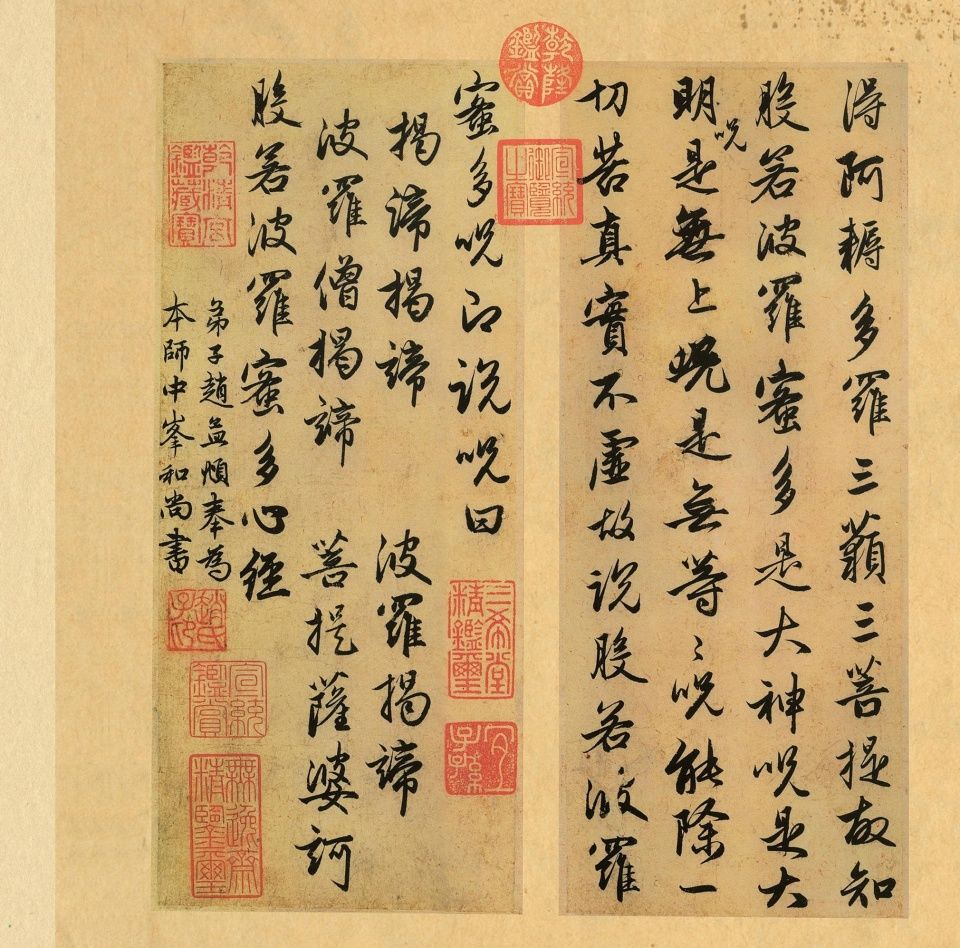 得阿耨多羅三藐三菩提故知
般若波羅蜜多是大神呪是大
明呪是無上呪是無等〻呪能除一
切苦真實不虛故說般若波羅
乾隆鑑賞
宣統御覽之寶
蜜多呪即說呪曰
三希堂精鑑璽
宜子孫
揭諦揭諦 波羅揭諦
波羅僧揭諦 菩提薩婆訶
般若波羅蜜多心經
弟子趙孟頫奉為
本師中峯和尚書
乾清宮鑑藏寶
趙氏子昂
宣統鑑賞
無逸齋精鑑璽